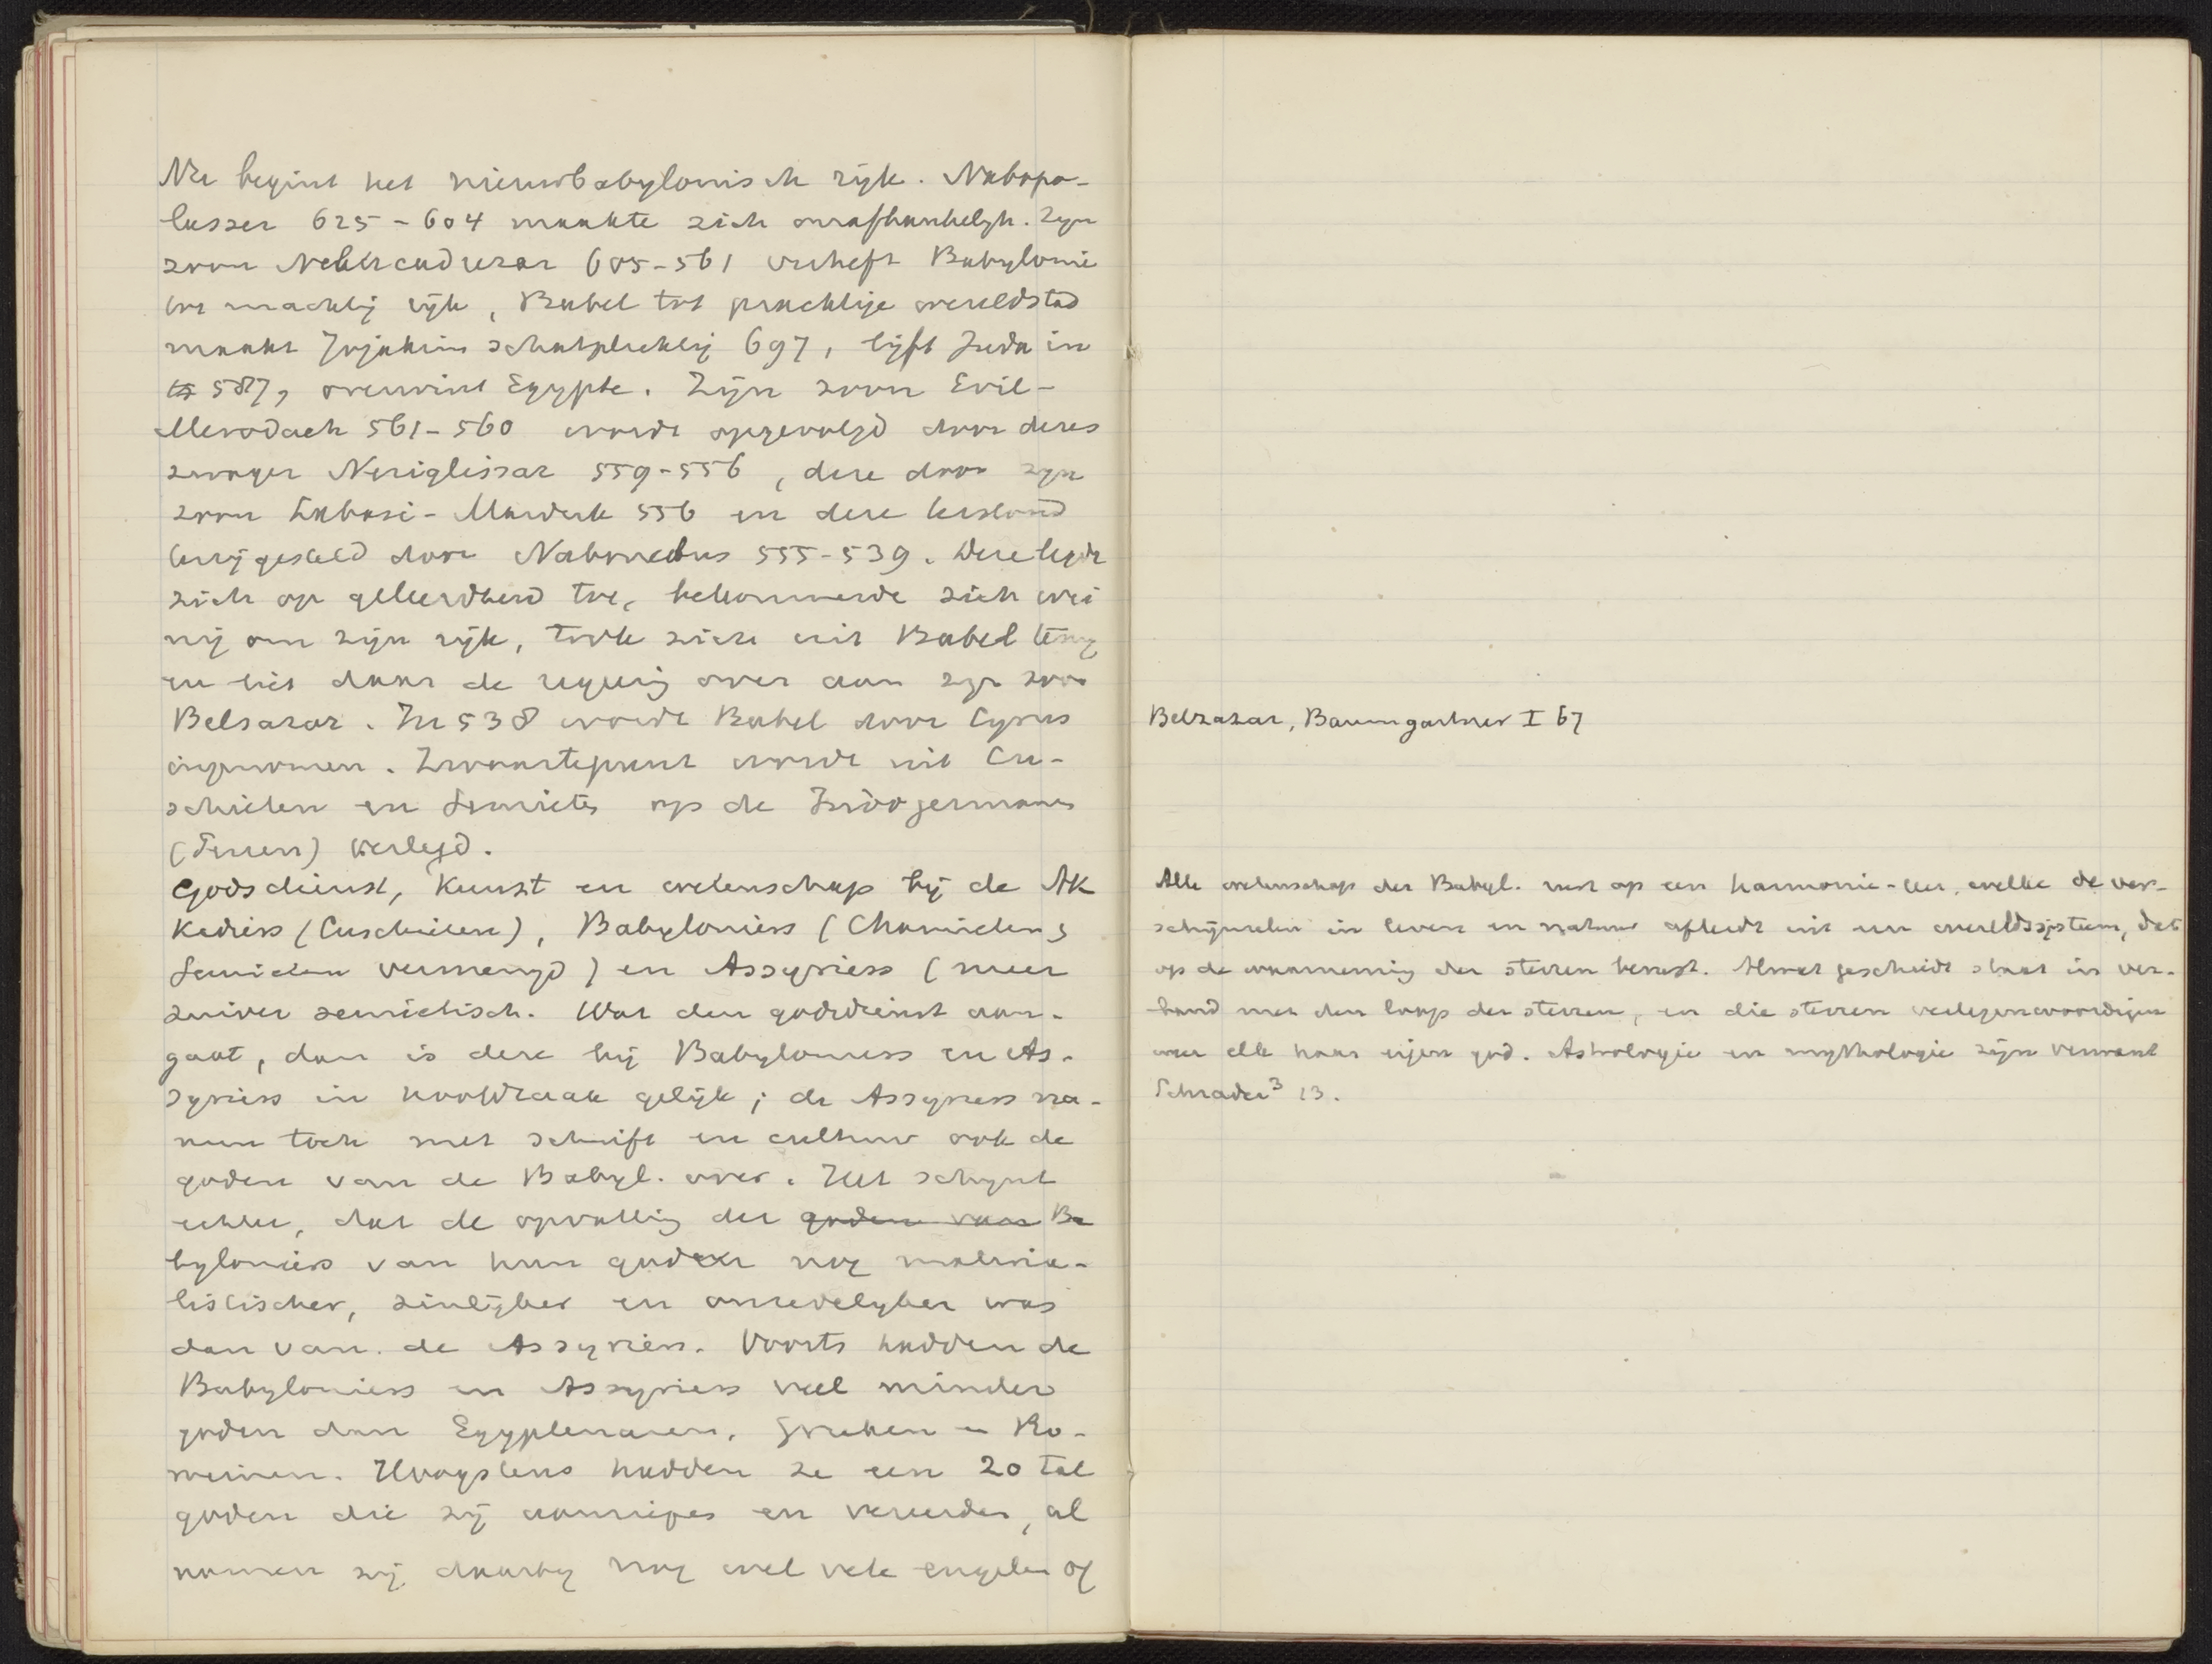 Nu begint het nieuwbabylonisch rijk. Nabopo-
lasser 625-604 maakte zich onafhankelijk. Zijn
zoon Nebucadrezar 605-561 verheft Babylonie
tot machtig rijk, Babel tot prachtige wereldstad
maakt Jojakim schatplichtig 697, lijft Juda in
587, overwint Egypte. Zijn zoon Evil-
Merodach 561-560 wordt opgevolgd door dezes
zwager Neriglissar 559-556, deze door zijn
zoon Labasi-Marduk 556 en deze terstond
terzijgesteld door Nabonedus 555-539. Deze legde
zich op geleerdheid toe, bekommerde zich wei
nig om zijn rijk, trok zich uit Babel terug
en liet daar de regering over aan zijn zoon
Belsazar. In 538 wordt Babel door Cyrus
ingenomen. Zwaartepunt wordt uit Cu-
schieten en Semieten op de Indogermanen
(Perzen) verlegd.
Godsdienst, Kunst en wetenschap bij de Ak
kadiers (Cuschieten), Babyloniers (Chamieten &
Semieten vermengd) en Assyriers (meer
zuiver semietisch. Wat den godsdienst aan-
gaat, dan is deze bij Babyloniers en As-
syriers in hoofdzaak gelijk; de Assyriers na-
men toch met schrift en cultuur ook de
goden van de Babyl. over. Het schijnt
echter, dat de opvatting der goden van Ba
byloniers van hun goden nog materia-
listischer, zinlijker en onzedelijker was
dan van de Assyriers. Voorts hadden de
Babyloniers en Assyriers veel minder
goden dan Egyptenaren, Grieken en Ro-
meinen. Hoogstens hadden ze een 20 tal
goden die zij aanriepen en vereerden, al
namen zij daarbij nog wel vele engelen of
Belsazar, Baumgartner I 67
Alle wetenschap der Babyl. rust op een harmonie-leer, welke de ver-
schijnselen in leven en natuur afleidt uit een wereldsysteem, dat
op de waarneming der sterren berust. Al wat geschiedt staat in ver-
band met den loop der sterren, en die sterren vertegenwoordigen
weer elk haar eigen god. Astrologie en mythologie zijn verwant
Schrader³ 13.